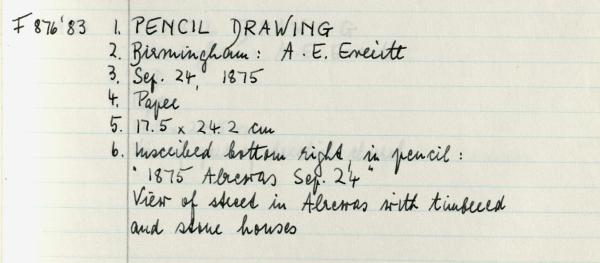 F 876'83 1. PENCIL DRAWING
2. Birmingham: A. E. Everitt
3. Sep. 24, 1875
4. Paper
5. 17.5 x 24.2 cm
6. Inscribed bottom right, in pencil:
"1875 Alrewas Sep. 24"
View of street in Alrewas with timbered
and stone houses